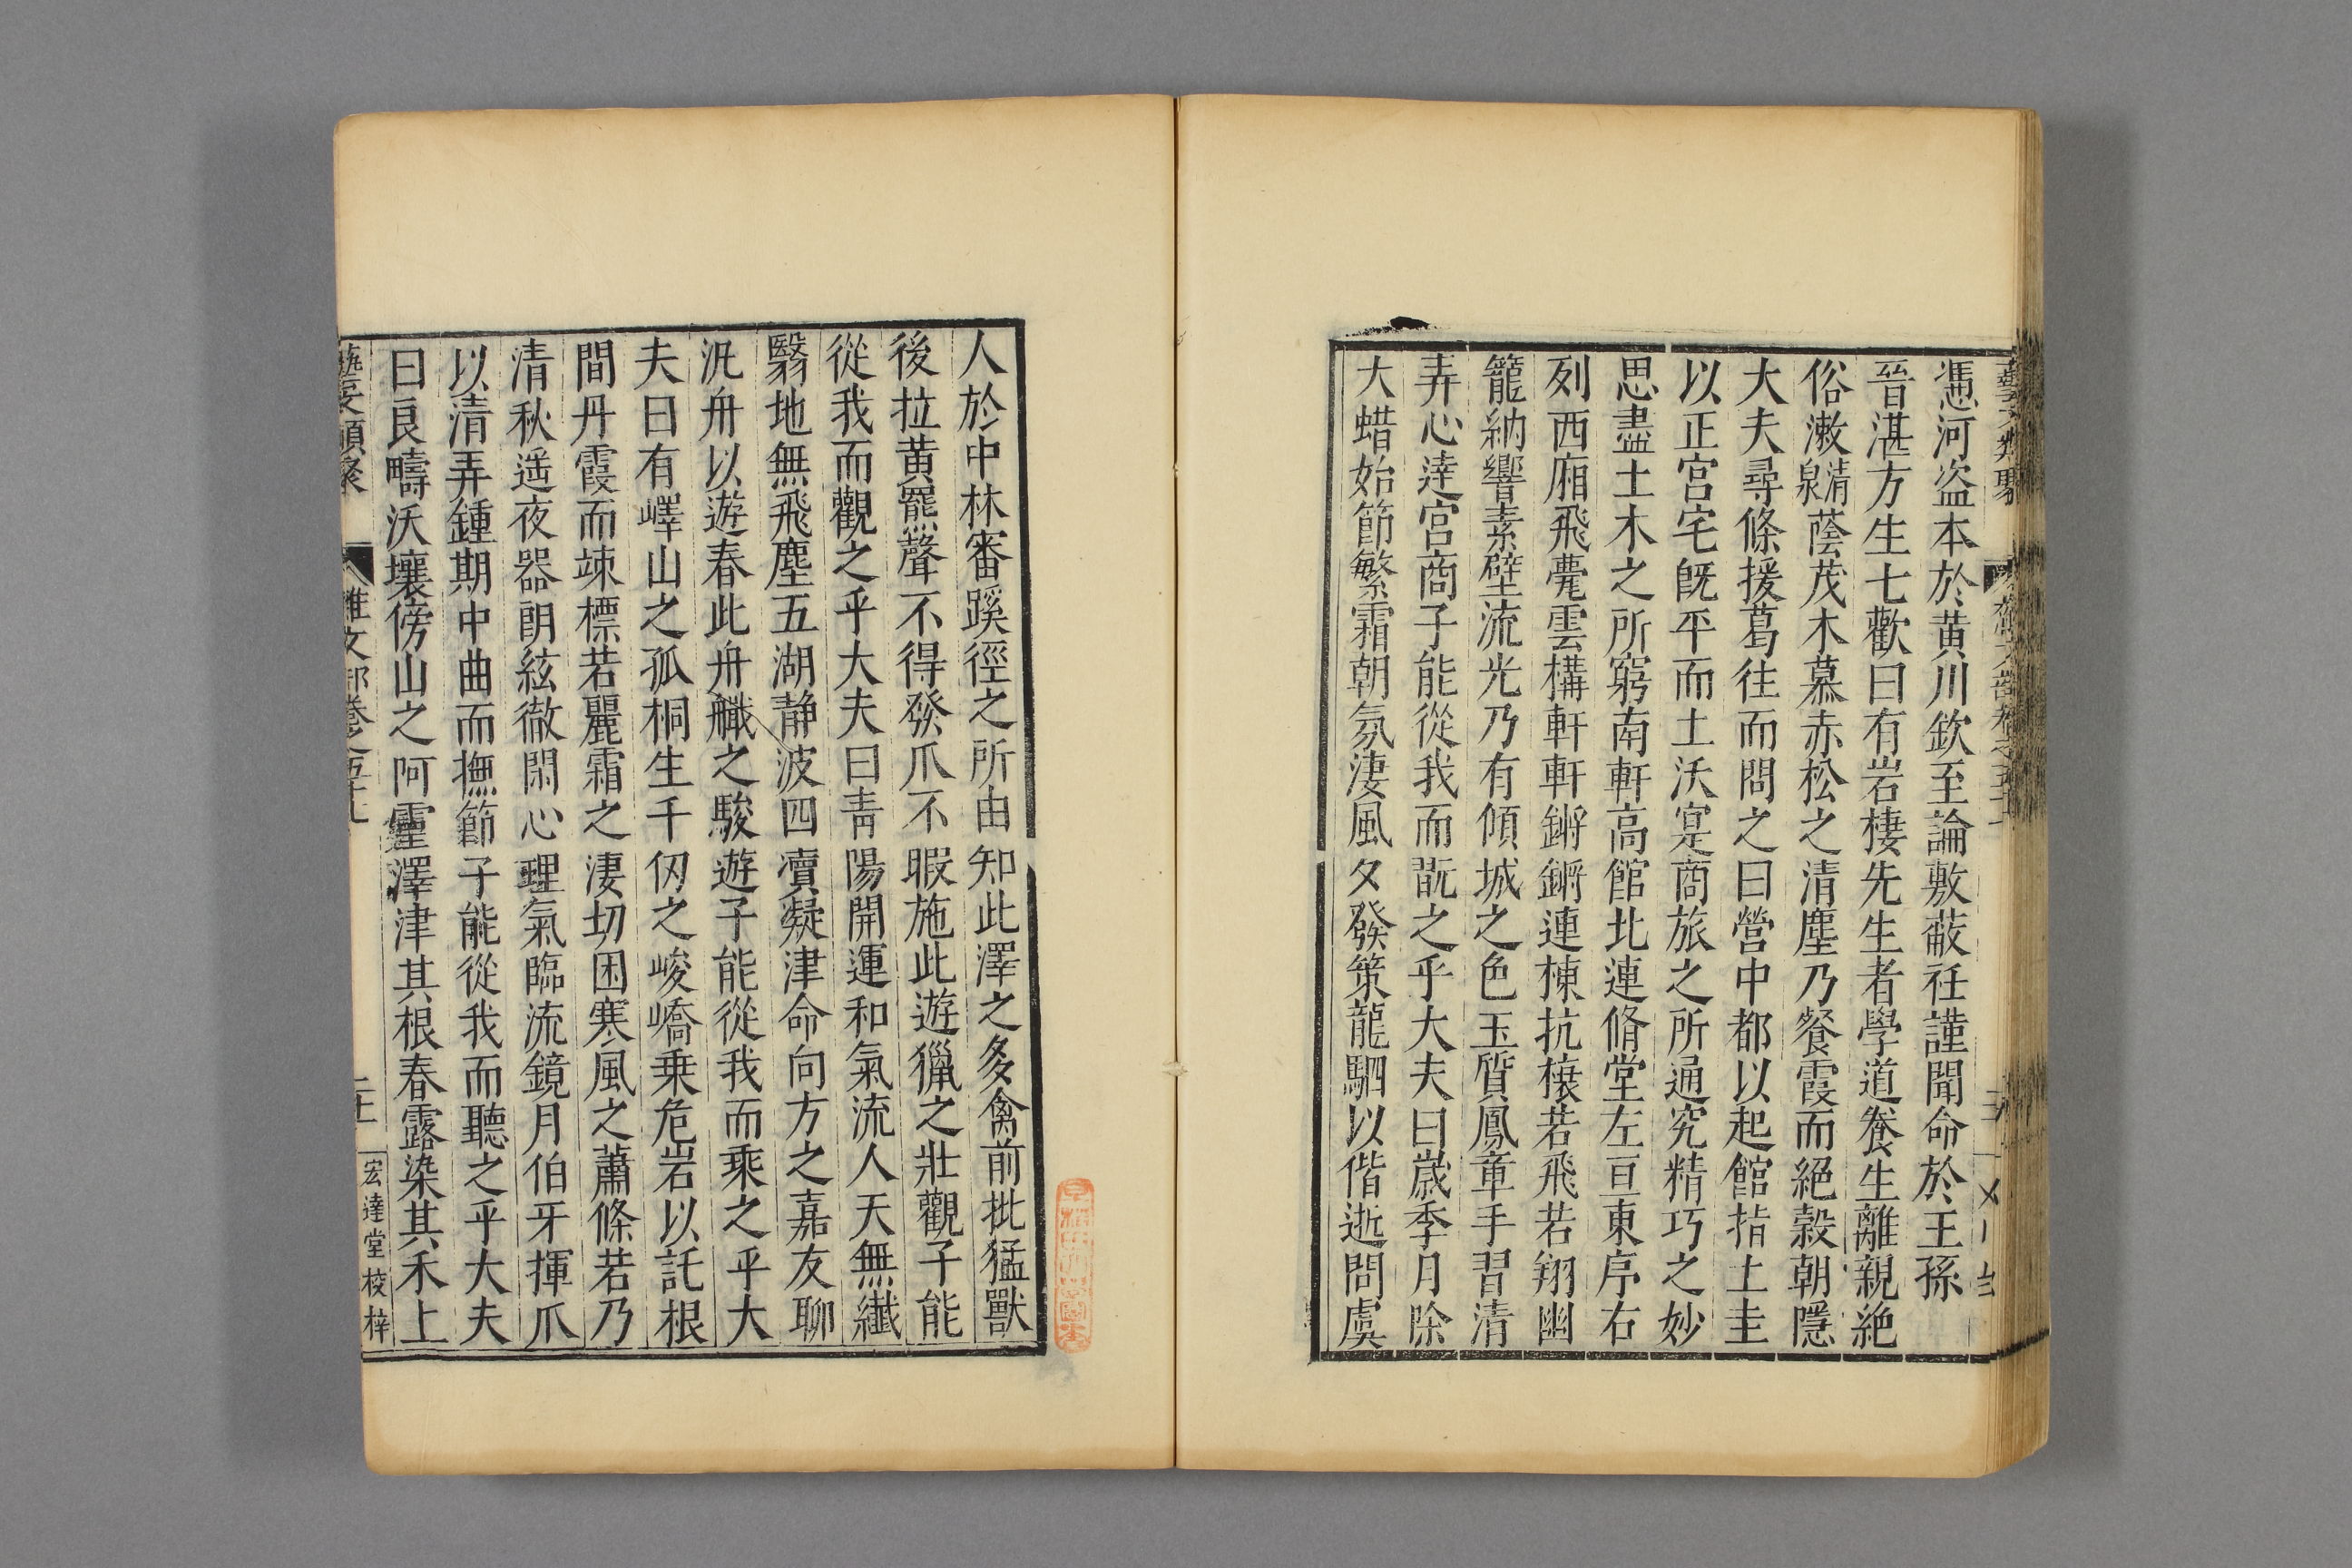 憑河盗本於黄川欽至論敷蔽衽謹聞命於王孫
晉湛方生七歡曰有岩棲先生者學道養生離親絶
俗漱清泉蔭茂木慕赤松之清塵乃餐霞而絕穀朝隱
大夫尋條援葛往而問之曰營中都以起館指土圭
以正宫宅旣平而土沃寔商旅之所通究精巧之妙
思盡土木之所窮南軒高館北連脩堂左亘東序右
列西廂飛甍雲構軒軒鏘鏘連棟抗欀若飛若翔幽
籠納響素壁流光乃有傾城之色玉質鳳章手習清
弄心達宫商子能從我而翫之乎大夫曰歲季月除
大蜡始節繁霜朝氛淒風夕發策龍駟以偕逝問虞
人於中林審蹊徑之所由知此澤之多禽前批猛獸
後拉黄羆聲不得發爪不暇施此遊獵之壯觀子能
從我而觀之乎大夫曰靑陽開運和氣流人天無纎
翳地無飛塵五湖静波四瀆凝津命向方之嘉友聊
汎舟以遊春此舟䑎之駿遊子能從我而乘之乎大
夫曰有嶧山之孤桐生千仭之峻嶠乗危岩以託根
間丹霞而竦標若麗霜之淒切困寒風之蕭條若乃
清秋遥夜器朗絃徹閑心理氣臨流鏡月伯牙揮爪
以清弄鍾期中曲而撫節子能從我而聽之乎大夫
曰良疇沃壤傍山之阿靈澤津其根春露染其禾上
藝文類聚 雜文部卷之五十七 二十一 宏達堂校梓